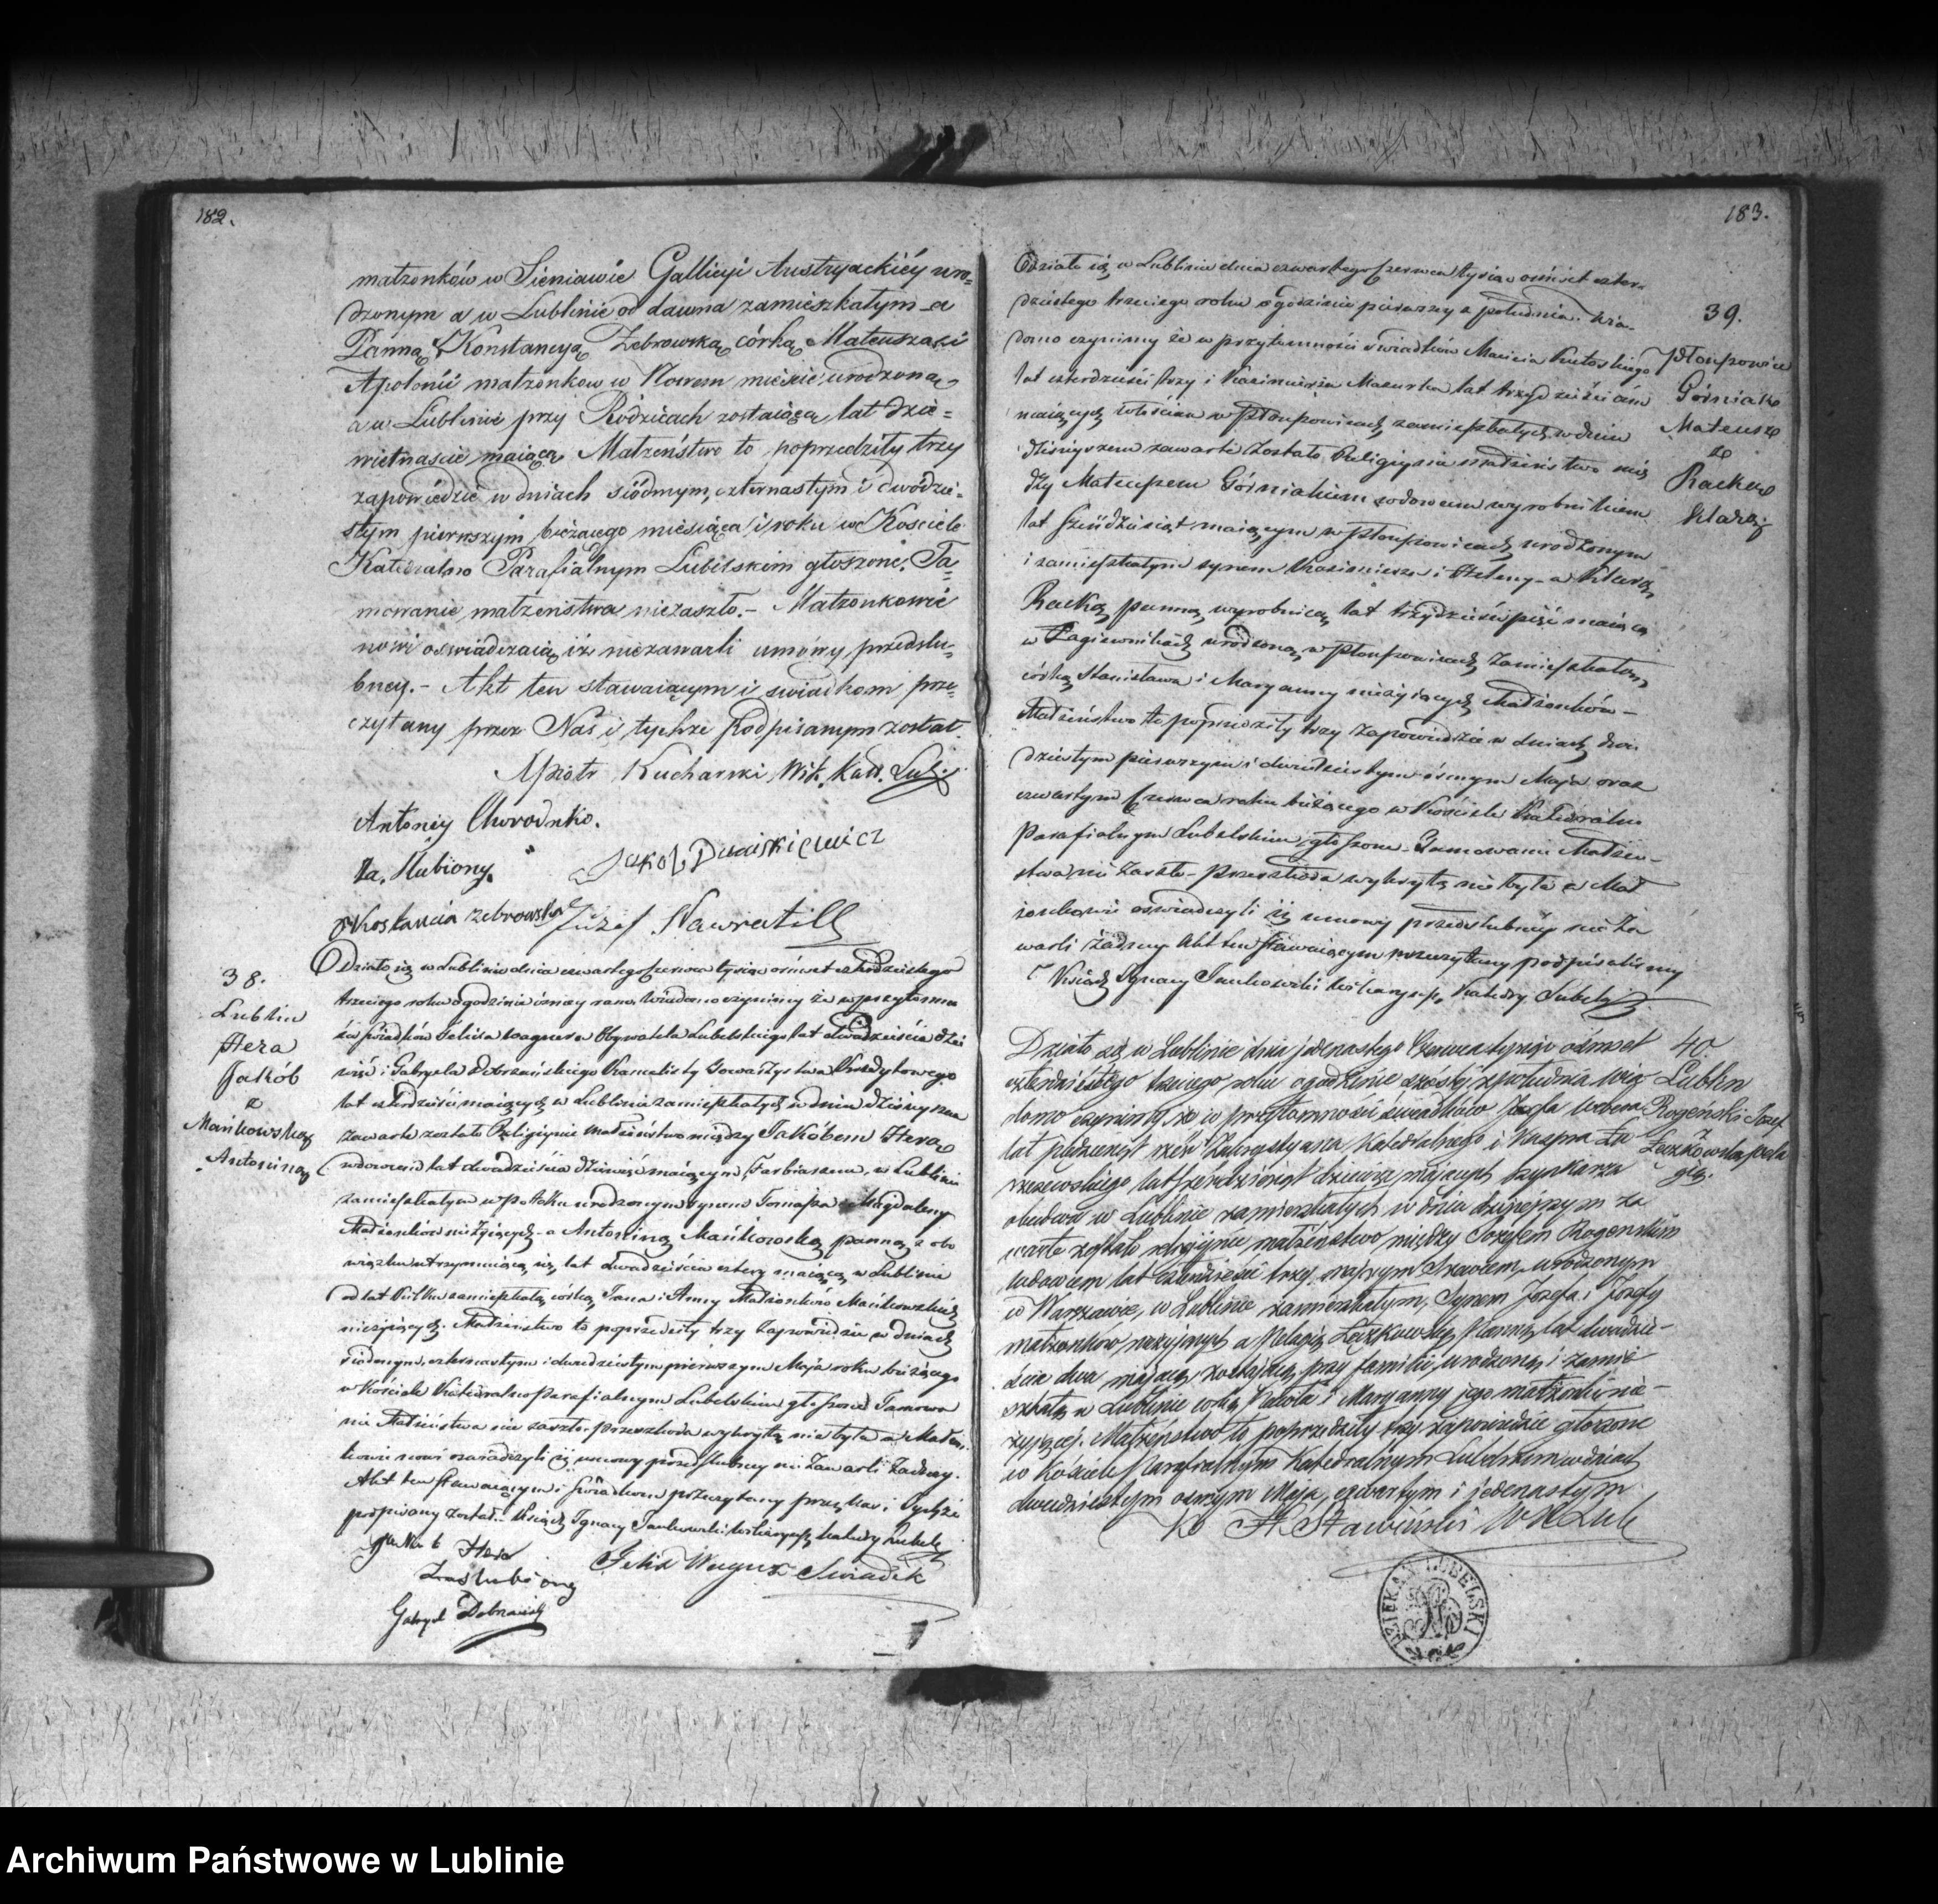 182.
małżonków w Sieniawie Gallicyi Austryackiéy uro=
dzonym a w Lublinie od dawna zamieszkałym - a
Panną Konstancyą Żebrowską córką Mateusza i
Apolonii małżonkow w Nowem mieście urodzoną
a w Lublinie przy Rodzicach zostaiącą lat dzie=
więtnaście maiącą Małżeństwo to poprzedziły trzy
zapowiedzie w dniach siódmym, czternastym i dwódzie=
stym pierwszym bieżącego miesiąca i roku w Kosciele
Katedralno Parafialnym Lubelskim głoszone. Ta=
mowanie małżeństwa niezaszło. - Małżonkowie
nowi oświadczaią iż niezawarli umówy przedślu=
bney. - Akt ten stawaiącym i swiadkom prze=
czytany przez Nas i tychże Podpisanym został.
Piotr Kucharski Wik. Kat. Lub.
Antoniy Chorodnko.
Za. Slubiony.
Jakob
Kostancia Zebrowska Józef Nawratill
38.
Lublin
Hera
Jakób
z
Mańkowską
Antoniną
Działo się w Lublinie dnia czwartego Czerwca tysiąc ośmset czterdziestego
trzeciego roku o godzinie ósmey rano. Wiadomo czynimy że w przytomno
ści świadków Felixa Wagnera Obywatela Lubelskiego lat dwadzieścia dzie
więć i Gabryela Dobrzańskiego Kancelisty Towarzystwa Kredytowego
lat czterdzieści maiących w Lublinie zamieszkałych w dniu dzisieyszym
zawarte zostało Religiynie małżeństwo między Jakóbem Herą
wdowcem lat dwadzieścia dziewięć maiącym, Farbiarzem, w Lublinie
zamieszkałym w urodzonym synem Tomasza i Magdaleny
Małżonków nieżyiących - a Antoniną Mańkowską panną z obo
wiązku utrzymuiącą się lat dwadzieścia cztery maiącą w Lublinie
od lat kilku zamieszkałą córką Jana i Anny Małżonków Mańkowskich
nieżyiących. Małżeństwo to poprzedziły trzy zapowiedzie w dniach
siódmym, czternastym i dwudziestym pierwszym Maja roku bieżącego
w Kościele Katedralno Parafialnym Lubelskim głoszone Tamowa
nie Małżeństwa nie zaszło - przeszkoda wykrytą nie była a Małżon
kowie nowi oświadczyli iż umowy przedślubney nie zawarli żadney.
Akt ten stawaiącym i świadkom przeczytany przez Nas i tychże
podpisany został. Ksiądz Ignacy Jankowski Wikaryusz Katedry Lubels
Jakób Hera Felix Wagner Swiadek
Zaslubiony
Gabryel Dobrzański
183.
39.
Płouszowice
Górniak
Mateusz
z
Racką
Klarą
Działo się w Lublinie dnia czwartego Czerwca tysiąc ośmset czter-
dziestego trzeciego roku o godzinie pierwszy z południa. Wia-
domo czynimy że w przytomności świadków Macieia Kutoskiego
lat czterdzieści trzy i Kazimierza Mazurka lat trzydzieści ośm
maiących włościan w Płouszowicach zamieszkałych w dniu
dzisieyszem zawarte zostało Religiynie małżeństwo mię
dzy Mateuszem Górniakiem wdowcem wyrobnikiem
lat sześćdziesiąt maiącym w Płouszowicach urodzonym
i zamieszkałym synem Kazimierza i Heleny - a Klarą
Racką panną, wyrobnicą, lat trzydzieści pięć maiącą
w Łagiewnikach urodzoną, w Płouszowicach zamieszkałą,
córką Stanisława i Maryanny nieżyiących Małżonków -
Małżeństwo to poprzedziły trzy zapowiedzie w dniach dwu
dziestym pierwszym i dwudziestym ósmym Maja oraz
czwartym Czerwca roku bieżącego w Kościele Katedralno
Parafialnym Lubelskim głoszone. Tamowanie Małżeń-
stwa nie zaszło - Przeszkoda wykrytą nie była a Mał
żonkowie oświadczyli iż umowy przedślubney nie za
warli żadney. Akt ten stawaiącym przeczytany podpisaliśmy
Ksiądz Ignacy Jankowski Wikaryusz Katedry Lubels
40.
Lublin
Rogeński Jozef
z
Leczkowską Pela
gią.
Działo się w Lublinie dnia jedenastego Czerwca tysiąc ośmset
czterdziestego trzeciego roku o godzinie szóstéj z południa. Wia
domo czynimy że w przytomności świadków Józefa
lat piędziesiąt sześć Zakrystyana Katedralnego i Kacpra
lat sześćdziesiąt dziewięć mających Szynkarza
obudwu w Lublinie zamieszkałych w dniu dzisiejszym za
warte zostało religijnie małżeństwo między Jozefem Rogenskim
wdowcem lat czterdzieści trzy mającym Szewcem, urodzonym
w Warszawie, w Lublinie zamieszkałym, Synem Józefa i Józefy
małżonkow nieżyjących a Pelagią Leczkowską Panną lat dwadzie-
ścia dwa mającą, zostającą przy familii, urodzoną i zamie
szkałą w Lublinie córką Karola i Maryanny jego małżonki nie-
żyjącej. Małżeństwo to poprzedziły trzy zapowiedzie głoszone
w Kościele Parafialnym Katedralnym Lubelskim w dniach
dwudziestym osmym Maja, czwartym i jedenastym
X. Sławiński W K Lub
DZIEKAN LUBELSKI
Archiwum Państwowe w Lublinie